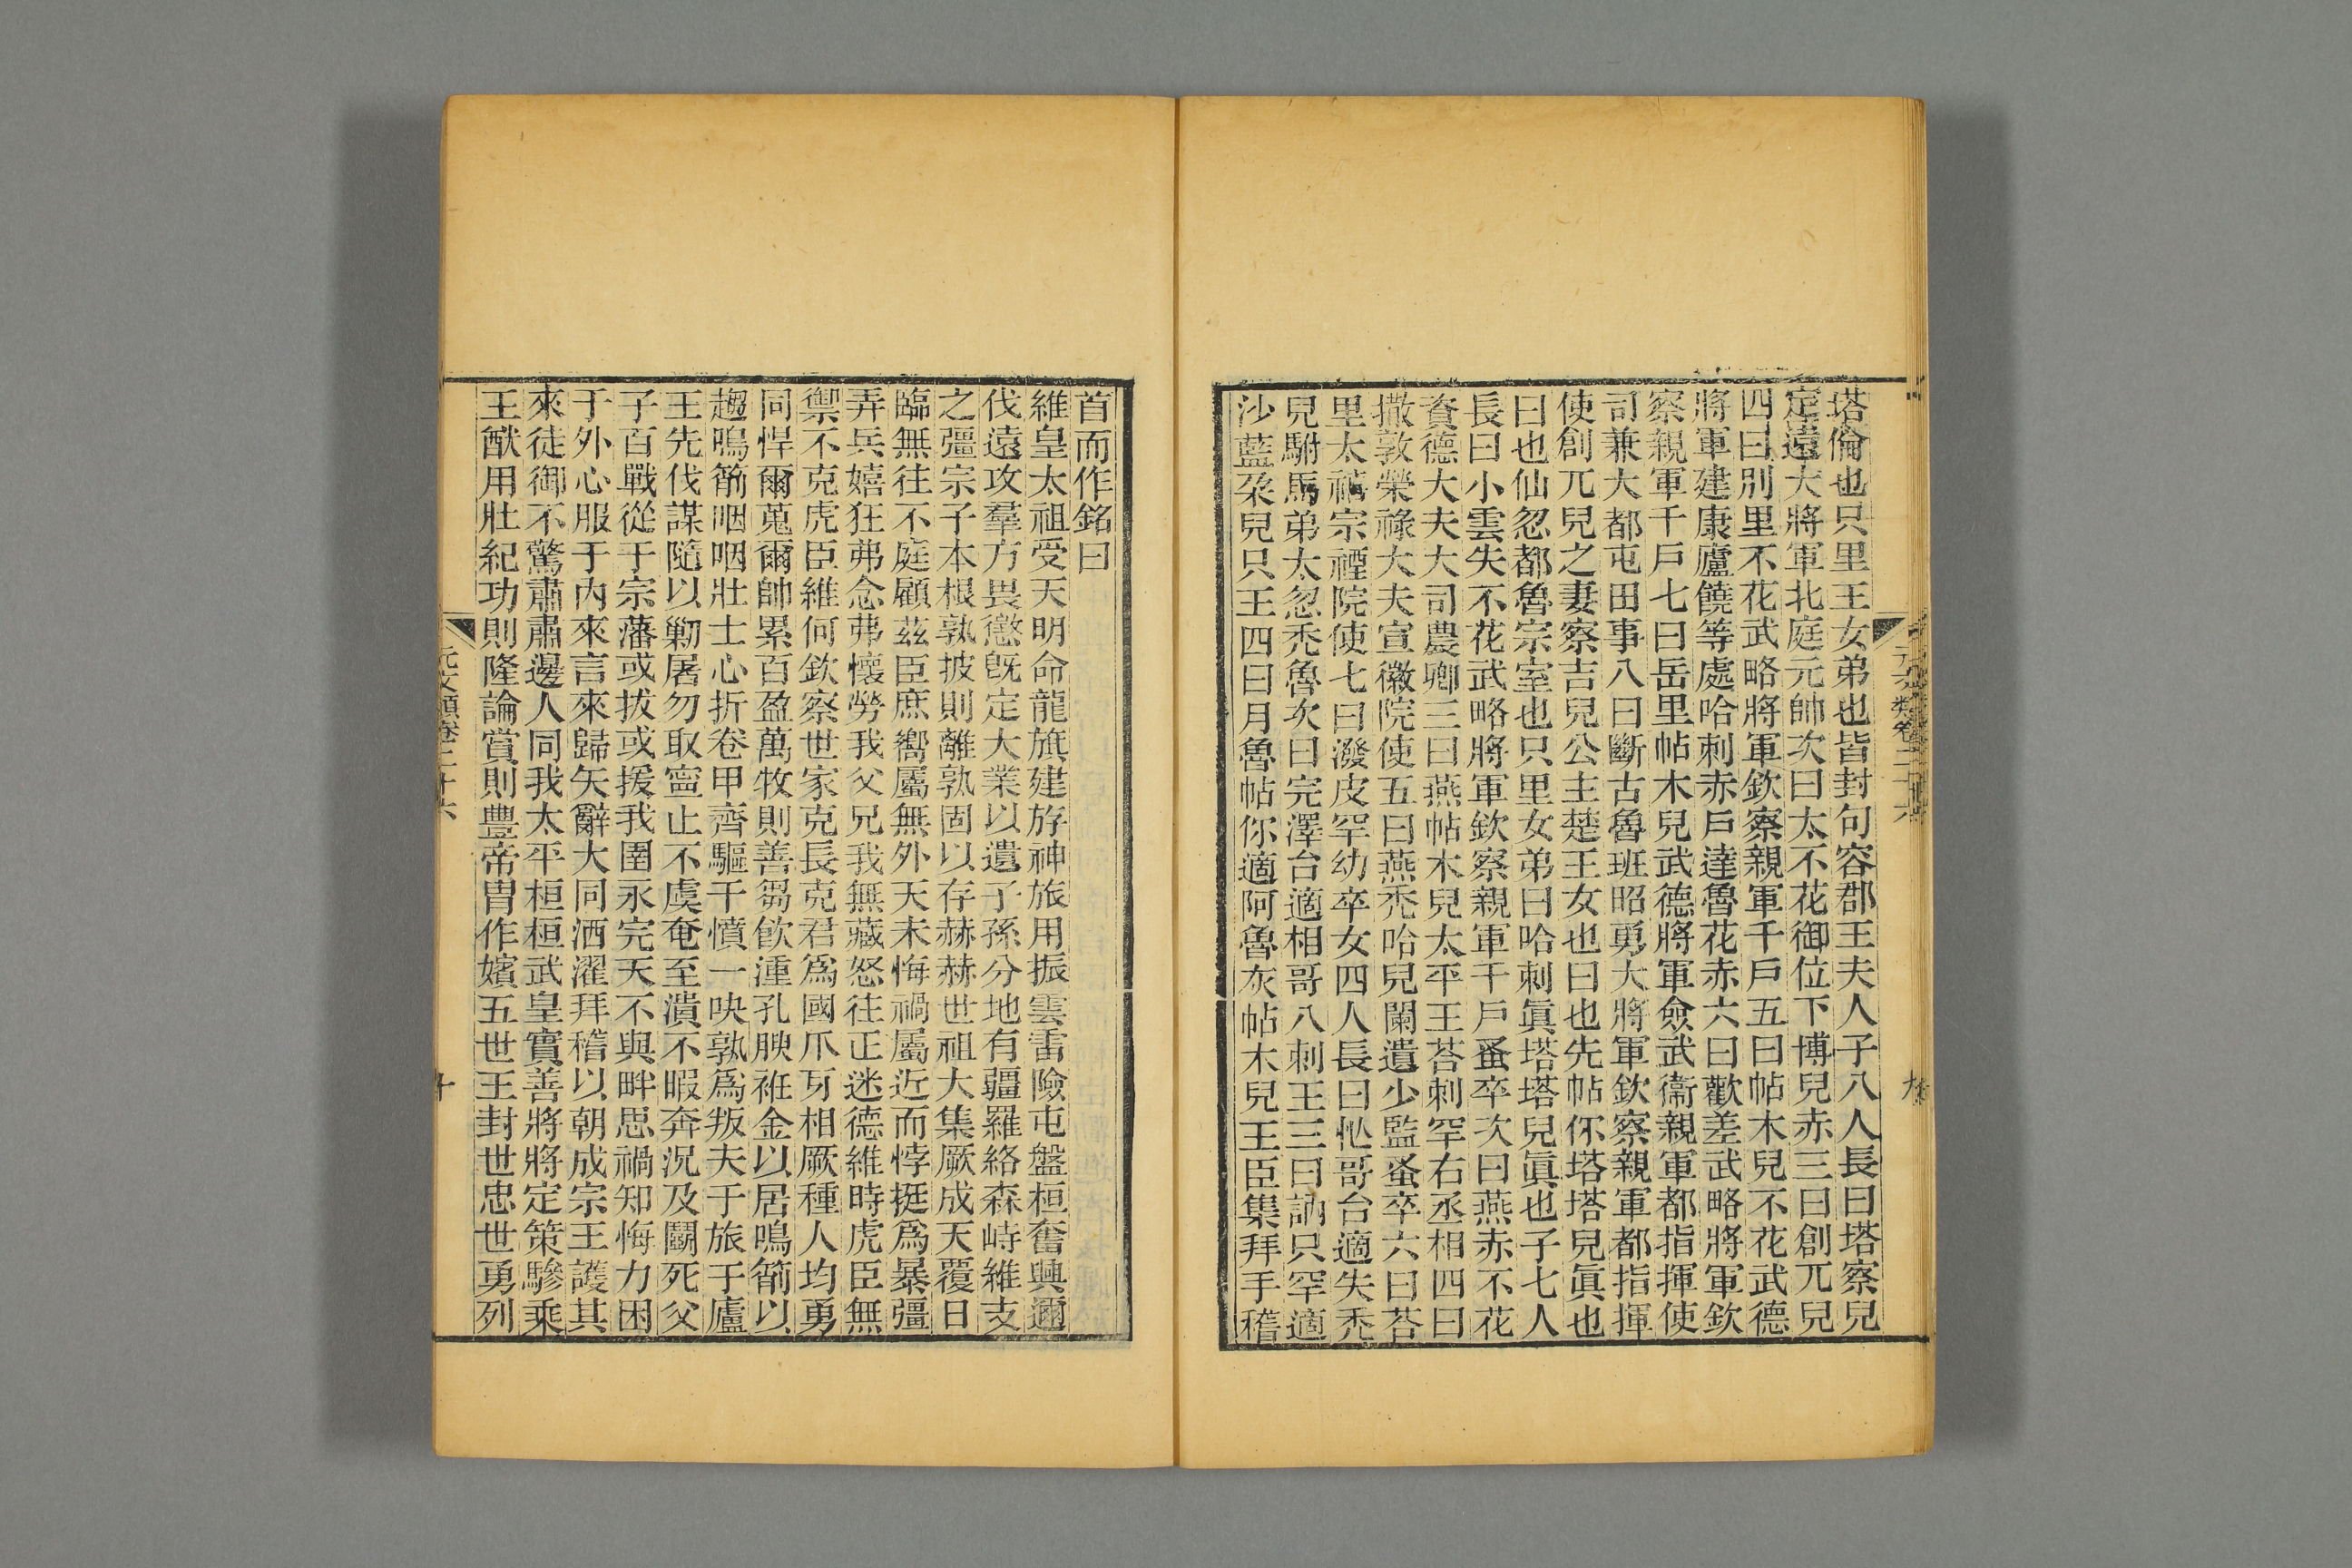 塔倫也只里王女弟也皆封句容郡王夫人子八人長曰塔察兒
定遠大將軍北庭元帥次曰太不花御位下博兒赤三曰創兀兒
四曰別里不花武略將軍欽察親軍千戶五曰帖木兒不花武德
將軍建康廬饒等處哈剌赤戶達魯花赤六曰歡差武略將軍欽
察親軍千戶七曰岳里帖木兒武德將軍僉武衞親軍都指揮使
司兼大都屯田事八曰斷古魯班昭勇大將軍欽察親軍都指揮
使創兀兒之妻察吉兒公主楚王女也曰也先帖你塔塔兒眞也
曰也仙忽都魯宗室也只里女弟曰哈剌眞塔塔兒眞也子七人
長曰小雲失不花武略將軍欽察親軍千戶蚤卒次曰燕赤不花
資德大夫大司農卿三曰燕帖木兒太平王荅剌罕右丞相四曰
撒敦榮祿大夫宣徽院使五曰燕禿哈兒闌遺少監蚤卒六曰荅
里太禧宗禋院使七曰潑皮罕幼卒女四人長曰忙哥台適失禿
兒駙馬弟太忽禿魯次曰完澤台適相哥八剌王三曰訥只罕適
沙藍朶兒只王四曰月魯帖你適阿魯灰帖木兒王臣集拜手稽
元文類卷二十六
九
首而作銘曰
維皇太祖受天明命龍旂建斿神旅用振雲雷險屯盤桓奮興邇
伐遠攻羣方畏懲旣定大業以遺子孫分地有疆羅絡森峙維支
之彊宗子本根孰披則離孰固以存赫赫世祖大集厥成天覆日
臨無往不庭顧茲臣庶嚮屬無外天未悔禍屬近而悖挺爲暴彊
弄兵嬉狂弗念弗懷勞我父兄我無藏怒往正迷德維時虎臣無
禦不克虎臣維何欽察世家克長克君爲國爪牙相厥種人均勇
同悍爾蒐爾帥累百盈萬牧則善芻飮湩孔腴袵金以居鳴箭以
趨鳴箭咽咽壯士心折卷甲齊驅千憤一吷孰爲叛夫于旅于廬
王先伐謀隨以勦屠勿取寧止不虞奄至潰不暇奔況及鬭死父
子百戰從于宗藩或拔或援我圉永完天不與畔思禍知悔力困
于外心服于內來言來歸矢辭大同洒濯拜稽以朝成宗王護其
來徒御不驚肅肅邊人同我太平桓桓武皇實善將將定策驂乘
王猷用壯紀功則隆論賞則豐帝胄作嬪五世王封世忠世勇列
元文類卷二十六
十